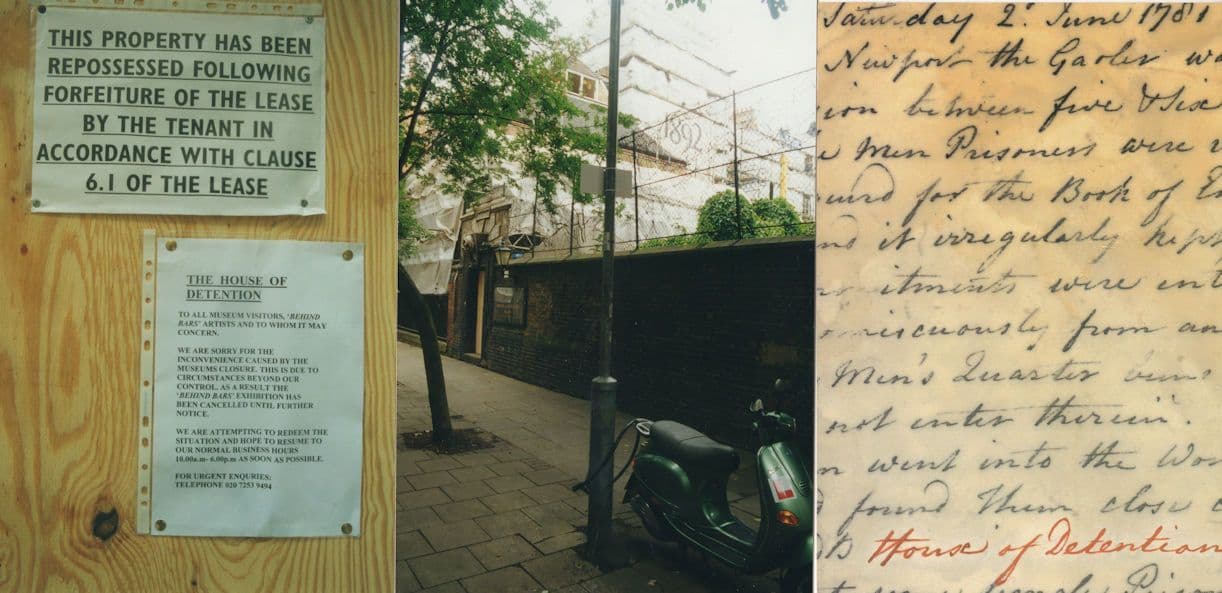 THIS PROPERTY HAS BEEN
REPOSSESSED FOLLOWING
FORFEITURE OF THE LEASE
BY THE TENANT IN
ACCORDANCE WITH CLAUSE
6.1 OF THE LEASE
THE HOUSE OF
DETENTION
TO ALL MUSEUM VISITORS, 'BEHIND
BARS' ARTISTS AND TO WHOM IT MAY
CONCERN.
WE ARE SORRY FOR THE
INCONVENIENCE CAUSED BY THE
MUSEUMS CLOSURE. THIS IS DUE TO
CIRCUMSTANCES BEYOND OUR
CONTROL. AS A RESULT THE
'BEHIND BARS' EXHIBITION HAS
BEEN CANCELLED UNTIL FURTHER
NOTICE.
WE ARE ATTEMPTING TO REDEEM THE
SITUATION AND HOPE TO RESUME TO
OUR NORMAL BUSINESS HOURS
10.00a.m- 6.00p.m AS SOON AS POSSIBLE.
FOR URGENT ENQURIES;
TELEPHONE 020 7253 9494
1892
Saturday 2d. June 1781
Newport the Gaoler
between five & Six
Men Prisoners were
for the Book of
it irregularly kept
were
from
Men's Quarter
not enter therein.
went into the
found them close
House of Detention